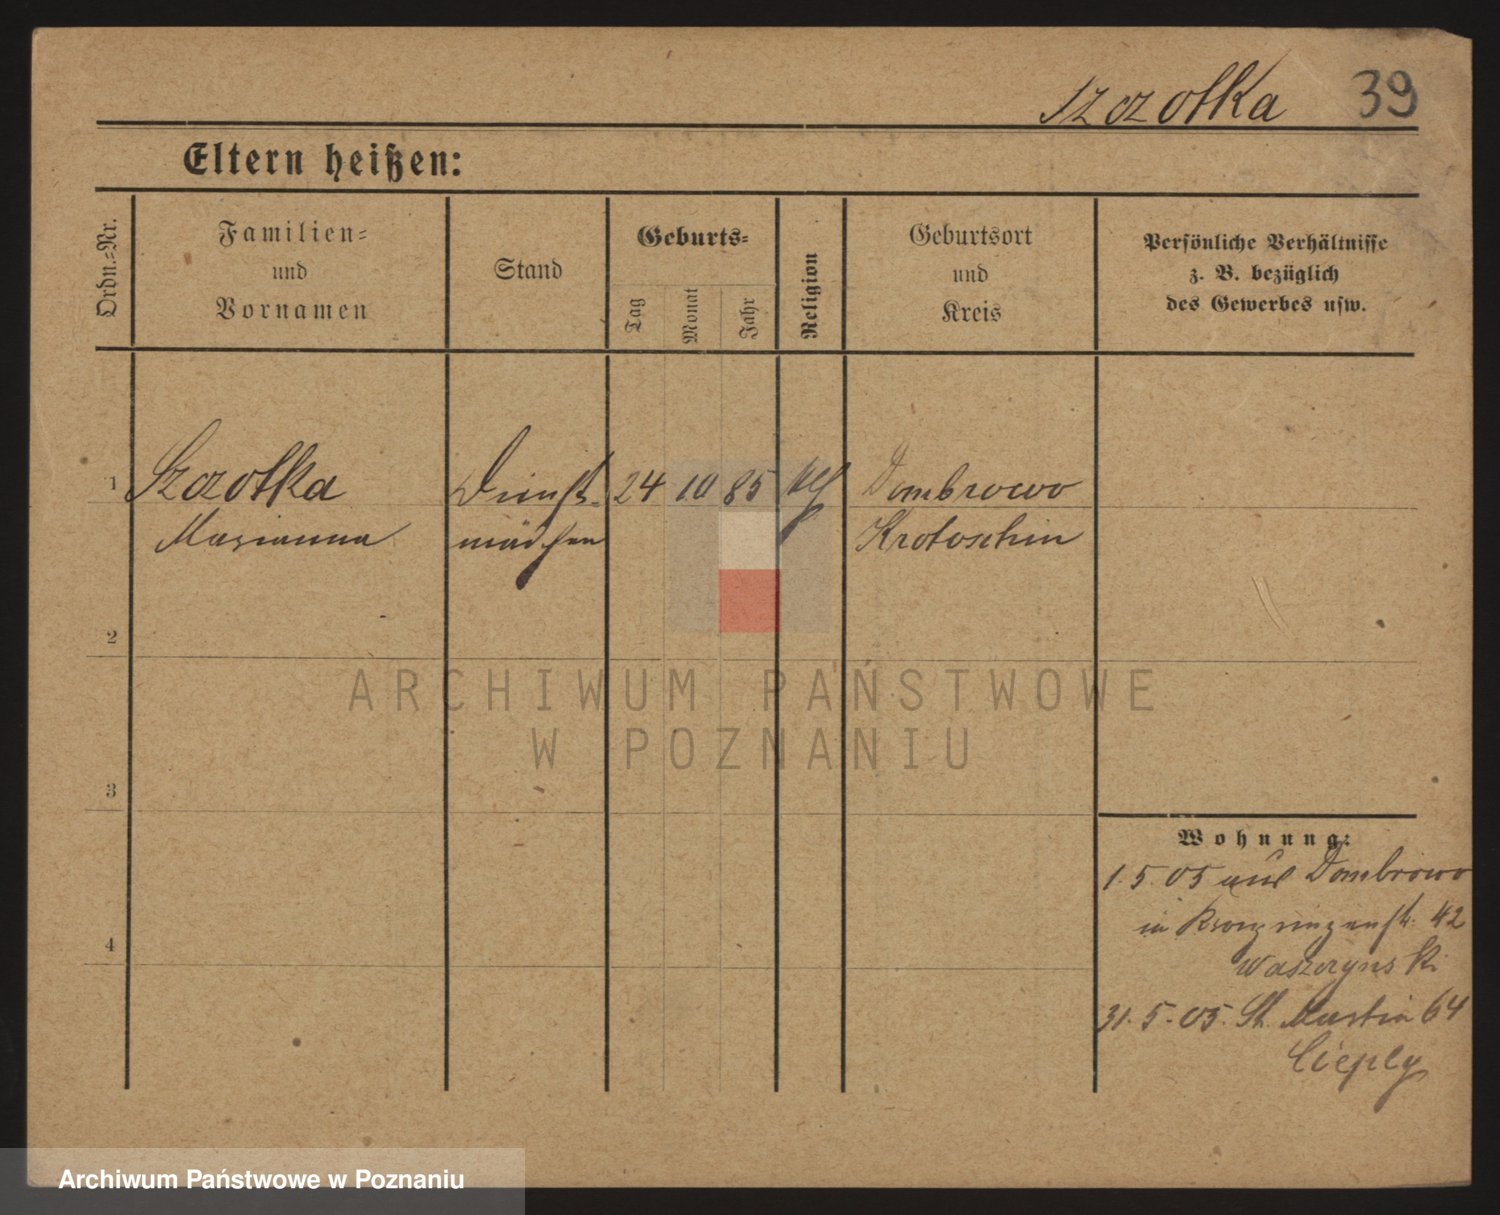 Szczotka 39
Eltern heißen:
Ordn.-Nr.
Familien-
und
Vornamen
Stand
Geburts-
Tag
Monat
Jahr
Religion
Geburtsort
und
Kreis
Persönliche Verhältnisse
z. B. bezüglich
des Gewerbes usw.
1 Szczotka Dienst- 24 10 85 Dombrowo
Marianna mädchen Krotoschin
2
3
4
Wohnung:
1. 5. 05 aus Dombrowo
in Kronprinzenstr. 42
Waszczynski
31. 5. 05. St. Martin 64
Cieply
ARCHIWUM PAŃSTWOWE
W POZNANIU
Archiwum Państwowe w Poznaniu